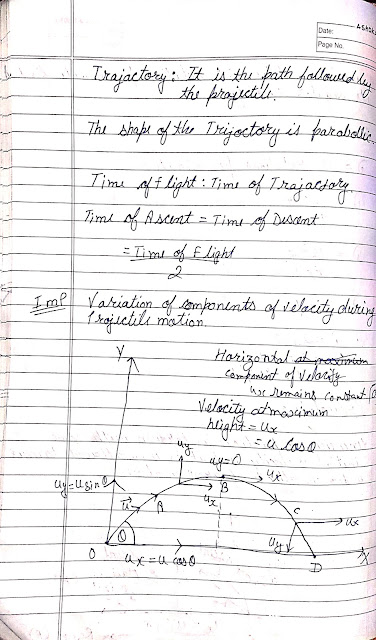 Date:
Page No.
Trajactory: It is the path followed by
the projectile.
The shape of the Trijoctory is parabollic.
Time of flight: Time of Trajactory
Time of Ascent = Time of Discent
= Time of Flight
2
Imp
Variation of components of velocity during
Projectile motion.
Y
Harizontal at maximum
component of velocity
ux remains constant
Velocity at maximum
hight = ux
= u cosθ
uy
uy=0
ux
uy=usinθ
B
ux
u
A
C
ux
uy
θ
O
ux = u cosθ
D
X